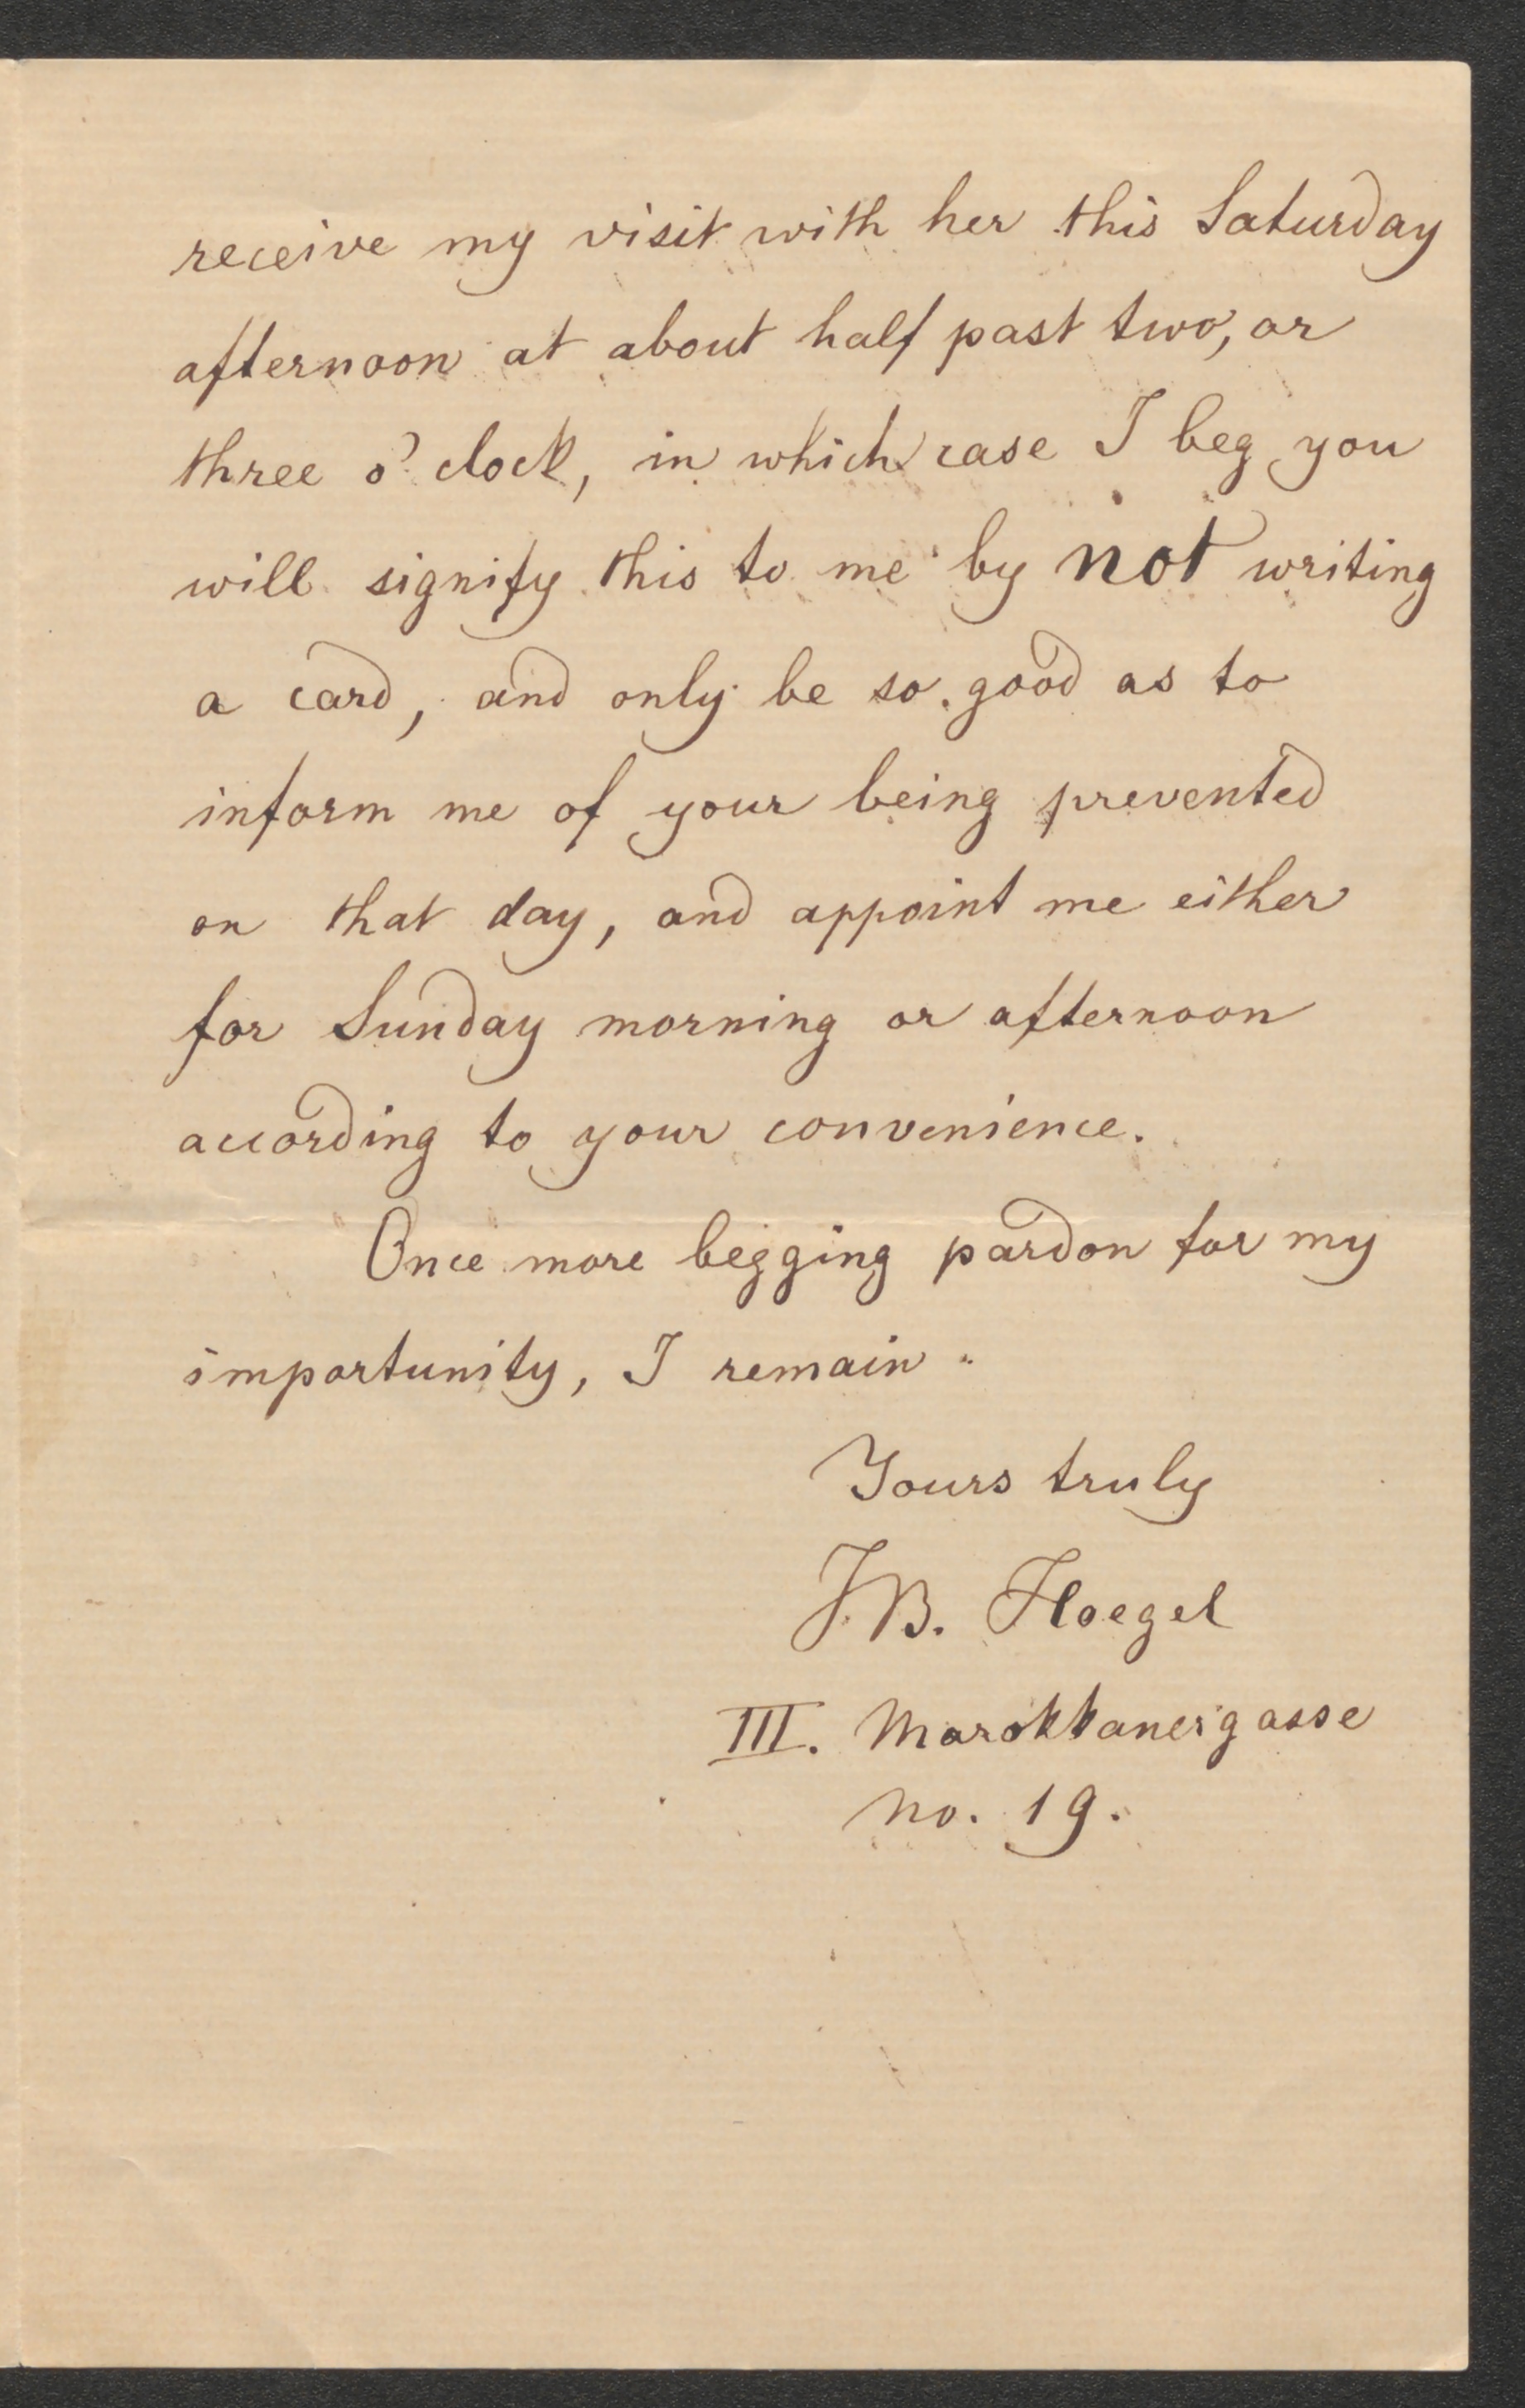 receive my visit with her this Saturday
afternoon at about half past two, or
three o' clock, in which case I beg you
will signify this to me by not writing
a card, and only be so good as to
inform me of your being prevented
on that day, and appoint me either
for Sunday morning or afternoon
according to your convenience.
Once more begging pardon for my
importunity, I remain
Yours truly
J. B. Floegel
III. Marokkanergasse
No. 19.